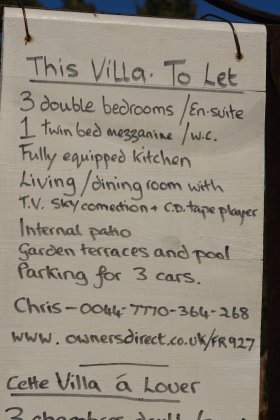 This Villa. To Let
3 double bedrooms /En-suite
1 twin bed mezzanine /w.c.
Fully equipped kitchen
Living /dining room with
T.V. SKY conection + C.D. tape player
Internal patio
Garden terraces and pool
Parking for 3 cars.
Chris - 0044-7770-364-268
www. ownersdirect.co.uk/FR927
Cette Villa á Louer
3 chambres